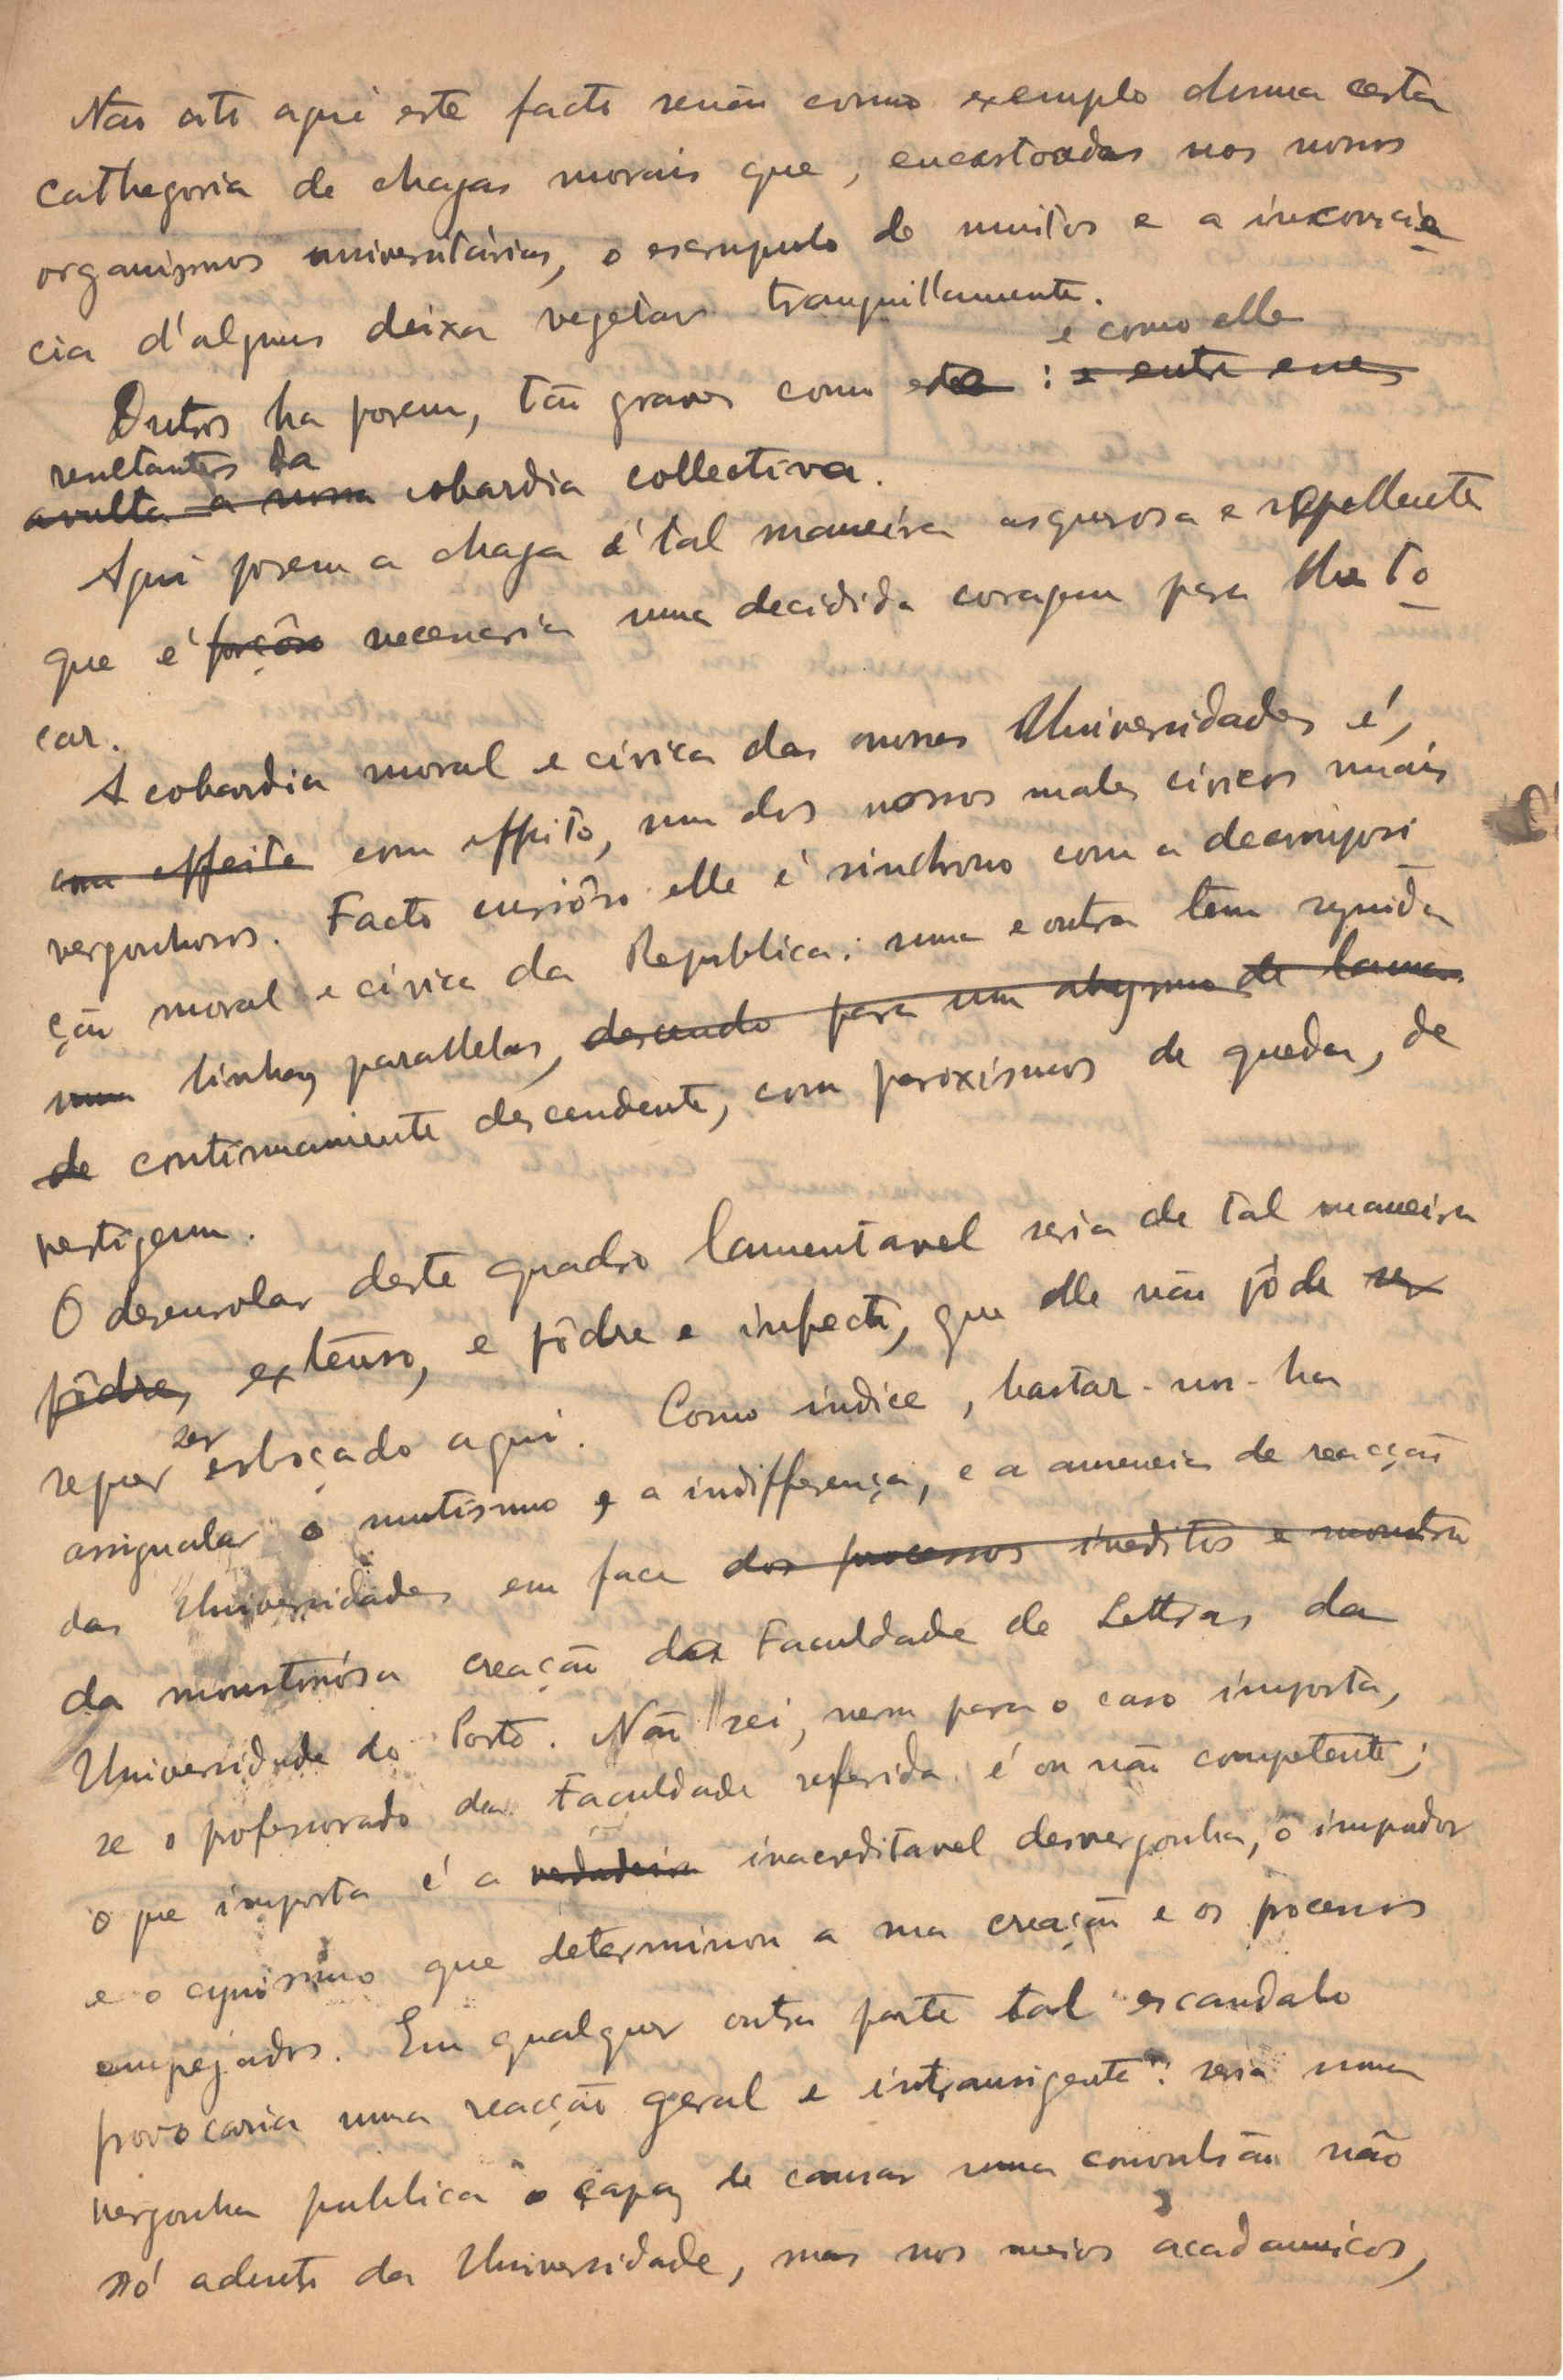 Não cito aqui este facto senão como exemplo duma certa
cathegoria de chagas morais que, encastoadas nos nossos
organismos universitários, o escrupulo de muitos e a inconsciên
cia d'alguns deixa vegetar tranquillamente.
e como elle
Outros ha porem, tão graves como este : e entre eues
resultantes da
avulta a nossa cobardia collectiva.
Aqui porem a chaga é tal maneira asquerosa e repellente
que é forçôso necessaria uma decidida coragem para lhe to
car.
A cobardia moral e civica das nossas Universidades é,
com effeito com effeito, um dos nossos males civicos mais
vergonhosos. Facto curiôso elle é sinchrono com a decomposi
ção moral e cívica da Republica: uma e outra tem seguida
uma linhas parallelas, descendo para um abysmo de lama
de continuamente descendente, com paroxismos de queda, de
vertigem.
O desenrolar deste quadro lamentavel seria de tal maneira
pôdre, extenso, e pôdre e infecto, que elle não pôde ser
sequer ser esboçado aqui. Como indice, bastar-nos-ha
assignalar o mutismo e a indifferença, e a ausencia de reacção
das Universidades em face dos processos ineditos e monstru
da monstruósa creação da Faculdade de Lettras da
Universidade do Porto. Não sei, nem para o caso importa,
se o professorado da Faculdade referida é ou não competente;
o que importa é a verdadeira inacreditavel desvergonha, o impudor
e o cynismo que determinou a sua creação e os processos
empregados. Em qualquer outra parte tal escandalo
provocaria uma reacção geral e intransigente: seria uma
vergonha publica capaz de causar uma convulsão não
só adentro da Universidade, mas nos meios academicos,